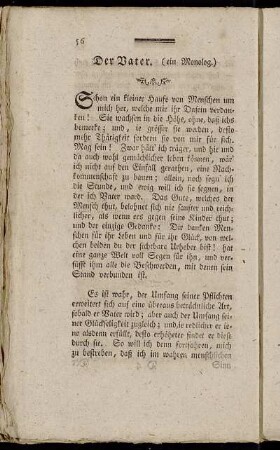 56
Der Vater. (ein Monolog.)
Schon ein kleiner Haufe von Menschen um
mich her, welche mir ihr Dasein verdan-
ken! Sie wachsen in die Höhe, ohne, daß ichs
bemerke; und, je größer sie werden, desto
mehr Thätigkeit fordern sie von mir für sich.
Mag sein! Zwar hätt' ich träger, und hie und
da auch wohl gemächlicher leben können, wär'
ich nicht auf den Einfall gerathen, eine Nach-
kommenschaft zu haben; allein, noch segn' ich
die Stunde, und ewig will ich sie segnen, in
der ich Vater ward. Das Gute, welches der
Mensch thut, belohnet sich nie sanfter und reich-
licher, als wenn ers gegen seine Kinder thut;
und der einzige Gedanke: Dir danken Men-
schen für ihr Leben und für ihr Glück, von wel-
chen beiden du der sichtbare Urheber bist! hat
eine ganze Welt voll Segen für ihn, und ver-
süßt ihm alle die Beschwerden, mit denen sein
Stand verbunden ist.
Es ist wahr, der Umfang seiner Pflichten
erweitert sich auf eine überaus beträchtliche Art,
sobald er Vater wird; aber auch der Umfang sei-
ner Glückseligkeit zugleich; und, je redlicher er je-
ne alsdenn erfüllt, desto erhöheter findet er diese
durch sie. So will ich denn fortfahren, mich
zu bestreben, daß ich im wahren menschlichen
Sinn